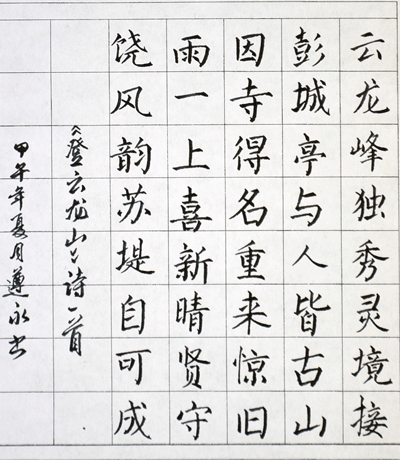 云龙峰独秀灵境接
彭城亭与人皆古山
因寺得名重来惊旧
雨一上喜新晴贤守
饶风韵苏堤自可成
《登云龙山》诗一首
甲午年夏月遵永书